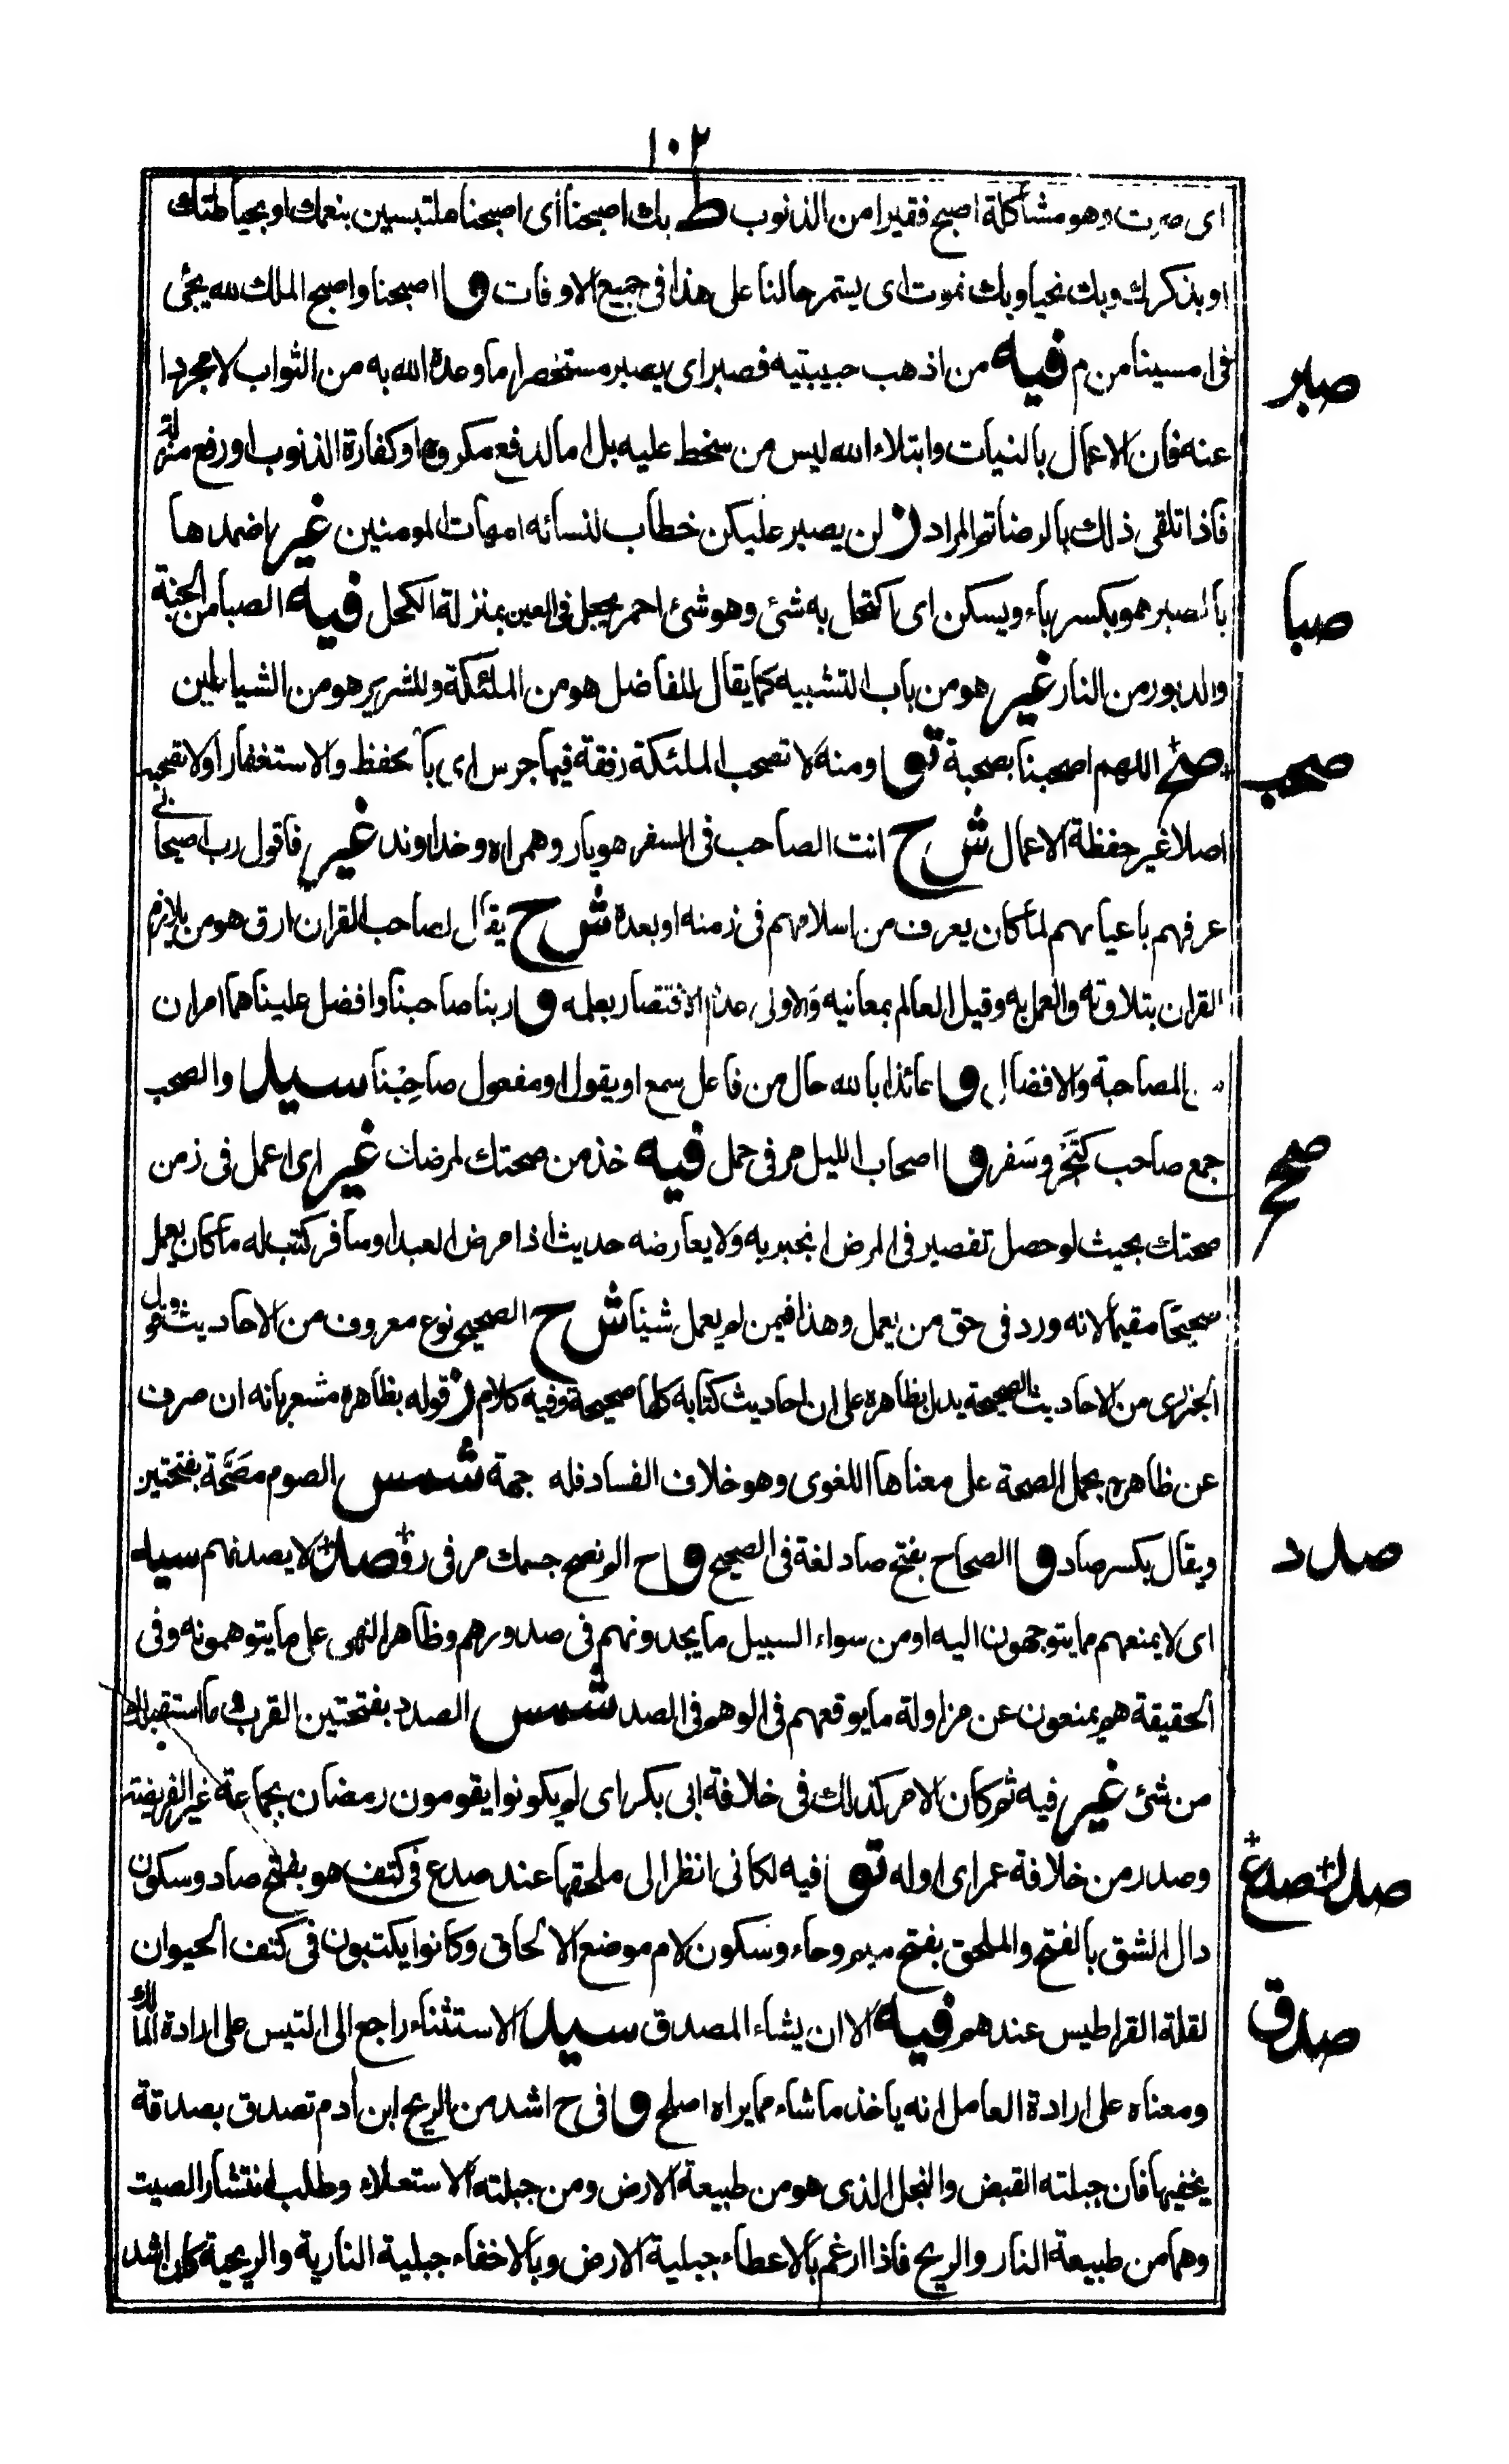 ١٠٢
اى صرت وهو مشاكلة اصبح فقيرا من الذنوب ط بك اصبحنا أى اصبحنا ملتبسين بنعمك او بحياطتك
او بذكرك وبك نحيا وبك نموت اى يستمر حالنا على هذا فى جميع الاوقات و ا اصبحنا واصبح الملك لله يجئ
فى امسينا من م فيه من اذهب حبيبتيه فصبر اى يصبر مستحضرا ما وعده الله به من الثواب لا مجردا
صبر
عنه فان الاعمال بالنيات وابتلاء الله ليس من سخط عليه بل اما لدفع مكروه او كفارة الذنوب او رفع منزلة
فاذا تلقى ذلك بالرضا تم المراد ن لن يصبر عليكن خطاب لنسائه امهات المومنين غير اضمدها
بالصبر هو بكسر باء ويسكن اى اكتحل به شئ وهو شئ احمر يجعل فى العين بمنزلة الكحل فيه الصبا من الجنة
صبا
والدبور من النار غير هو من باب التشبيه كما يقال للفاضل هو من الملئكة وللشرير هو من الشياطين
صح اللهم اصحبنا بصحبة تو ا ومنه لا تصحب الملئكة رفقة فيها جرس اى بالحفظ والاستغفار او لا تصحبه
صحب
اصلا غير حفظة الاعمال ش ح انت الصاحب فى السفر هو يار وهمراه وخداوند غير فاقول رب اصيحابى
عرفهم باعيانهم لما كان يعرف من اسلامهم فى زمنه او بعده ش ح يقال لصاحب القران ارق هو من يلازم
القران بتلاوته والعمل به وقيل العالم بمعانيه والاولى عدم الاقتصار بعلمه و ا ربنا صاحبنا وافضل علينا هما امران
المصاحبة والافضال و ا عائذا بالله حال من فاعل سمع او يقول او مفعول صاحِبْنا سيد والصحب
جمع صاحب كتَجْر وسَفر و ا اصحاب الليل مر فى حمل فيه خذ من صحتك لمرضك غير اى اعمل فى زمن
صحح
صحتك بحيث لو حصل تقصير فى المرض انجبر به ولا يعارضه حديث اذا مرض العبد او سافر كتب له ما كان يعمل
صحيحا مقيما لانه ورد فى حق من يعمل وهذا فيمن لم يعمل شيئا ش ح الصحيح نوع معروف من الاحاديث وقول
الجزرى من الاحاديث الصحيحة يدل بظاهره على ان احاديث كتابه كلها صحيحة وفيه كلام ن قوله بظاهره مشعر بانه ان صرف
عن ظاهره بحمل الصحة على معناها اللغوى وهو خلاف الفساد فله جهة شمس الصوم مصَحَّة بفتحتين
ويقال بكسر صاد و ا الصحاح بفتح صاد لغة فى الصحيح و ا ح الو نصح جسمك مر فى رو صد لا يصدنهم سيد
صدد
اى لا يمنعهم مما يتوجهون اليه او من سواء السبيل ما يجدونهم فى صدورهم وظاهر النهى على ما يتوهمونه وفى
الحقيقة هم يمنعون عن مزاولة ما يوقعهم فى الوهم فى الصد شمس الصدد بفتحتين القرب وما استقبلك
من شئ غير فيه ثم كان الامر كذلك فى خلافة ابى بكر اى لم يكونوا يقومون رمضان بجماعة غير الفريضة
وصدر من خلافة عمر اى اوله تو ا فيه لكانى انظر الى ملحقها عند صدع فى كتف هو بفتح صاد وسكون
صدر صدع
دال الشق بالفتح والملحق بفتح ميم وحاء وسكون لام موضع الالحاق وكانوا يكتبون فى كتف الحيوان
لقلة القراطيس عندهم فيه الا ان يشاء المصدق سيد الاستثناء راجع الى التيس على ارادة المالك
صدق
ومعناه على ارادة العامل انه ياخذ ما شاء مما يراه اصلح و ا فى ح اشد من الريح ابن ادم تصدق بصدقة
يخفيها فان جبلته القبض والبخل الذى هو من طبيعة الارض ومن جبلته الاستعلاء وطلب انتشار الصيت
وهما من طبيعة النار والريح فاذا ارغم بالاعطاء جبلية الارض وبالاخفاء جبلية النارية والريحية كان اشد